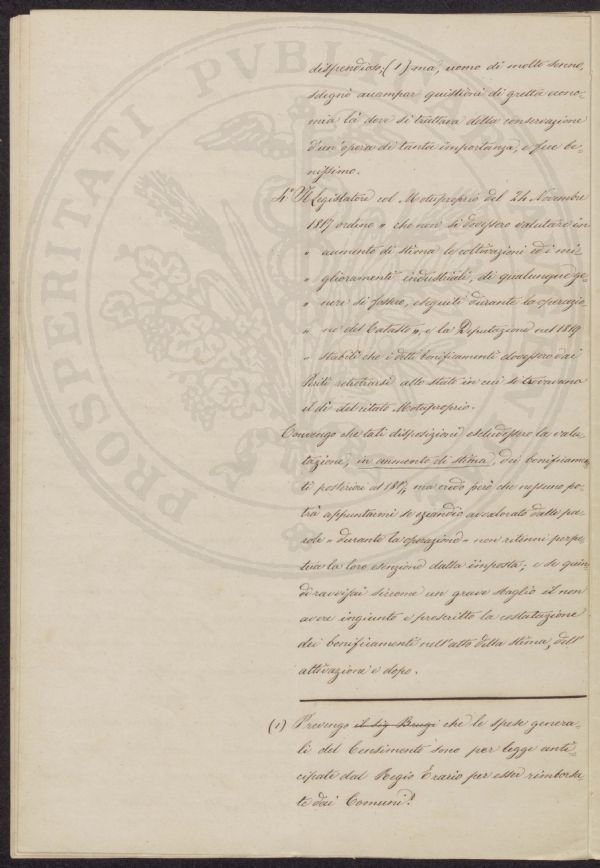 dispendioso; (1) ma, uomo di molto senno,
sdegnò accampar quistioni di gretta econo-
mia là dove si trattava della conservazione
d'un'opera di tanta importanza, e fece be-
nissimo.
4.° Il Legislatore col Motuproprio del 24 Novembre
1817 ordinò " che non si dovessero valutare in
" aumento di stima le coltivazioni ed i mi-
" glioramenti industriali, di qualunque ge-
" nere si fossero, eseguiti durante la operazio-
" ne del Catasto ", e la Deputazione nel 1819
" stabilì che i detti bonificamenti dovessero dai
Periti retrotrarsi allo stato in cui si trovavano
il dì del citato Motuproprio.
Convengo che tali disposizioni escludessero la valu-
tazione, in aumento di stima, dei bonificamen-
ti posteriori al 1817, ma credo però che nessuno po-
trà appuntarmi se eziandio avvalorato dalle pa-
role " durante la operazione " non ritenni perpe-
tua la loro esenzione dalla imposta; e se quin-
di ravvisai siccome un grave sbaglio il non
avere ingiunto e prescritto la costatazione
dei bonificamenti nell'atto della stima, dell'
attivazione e dopo.
(1) Prevengo il Sig. Brugi che le spese genera-
li del Censimento sono per legge anti-
cipate dal Regio Erario per esser rimborsa-
te dai Comuni!
PROSPERITATI PVBLI